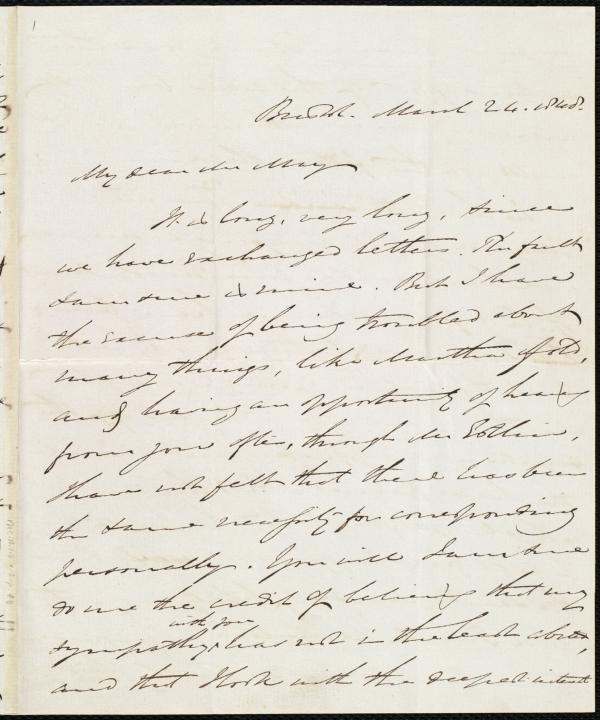 1
Bristol. March 24. 1848.
My dear Mr May
It is long, very long, since
we have exchanged letters. The fault
I am sure is mine. But I have
the excuse of being troubled about
many things, like Martha of old,
and having an opportunity of hearing
from you often, through Mr Estlin,
I have not felt that there has been
the same necessity for corresponding
personally. You will I am sure
do me the credit of believing that my
with you
sympathy has not in the least abated,
and that I look with the deepest interest